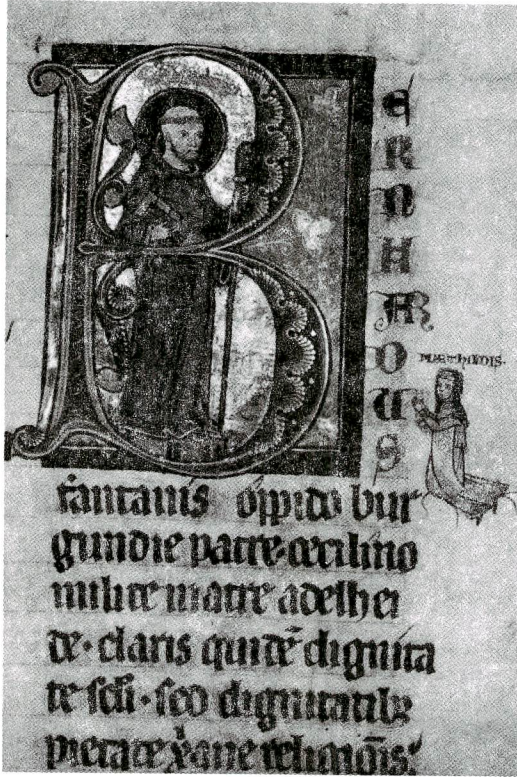 BERNHARDUS
fantanis oppido bur
gundie patre·cecilino
milite matre adelhei
de·claris quidē dignita
te scli·sed dignitatibꝫ
pietate xp̄ane religiōis